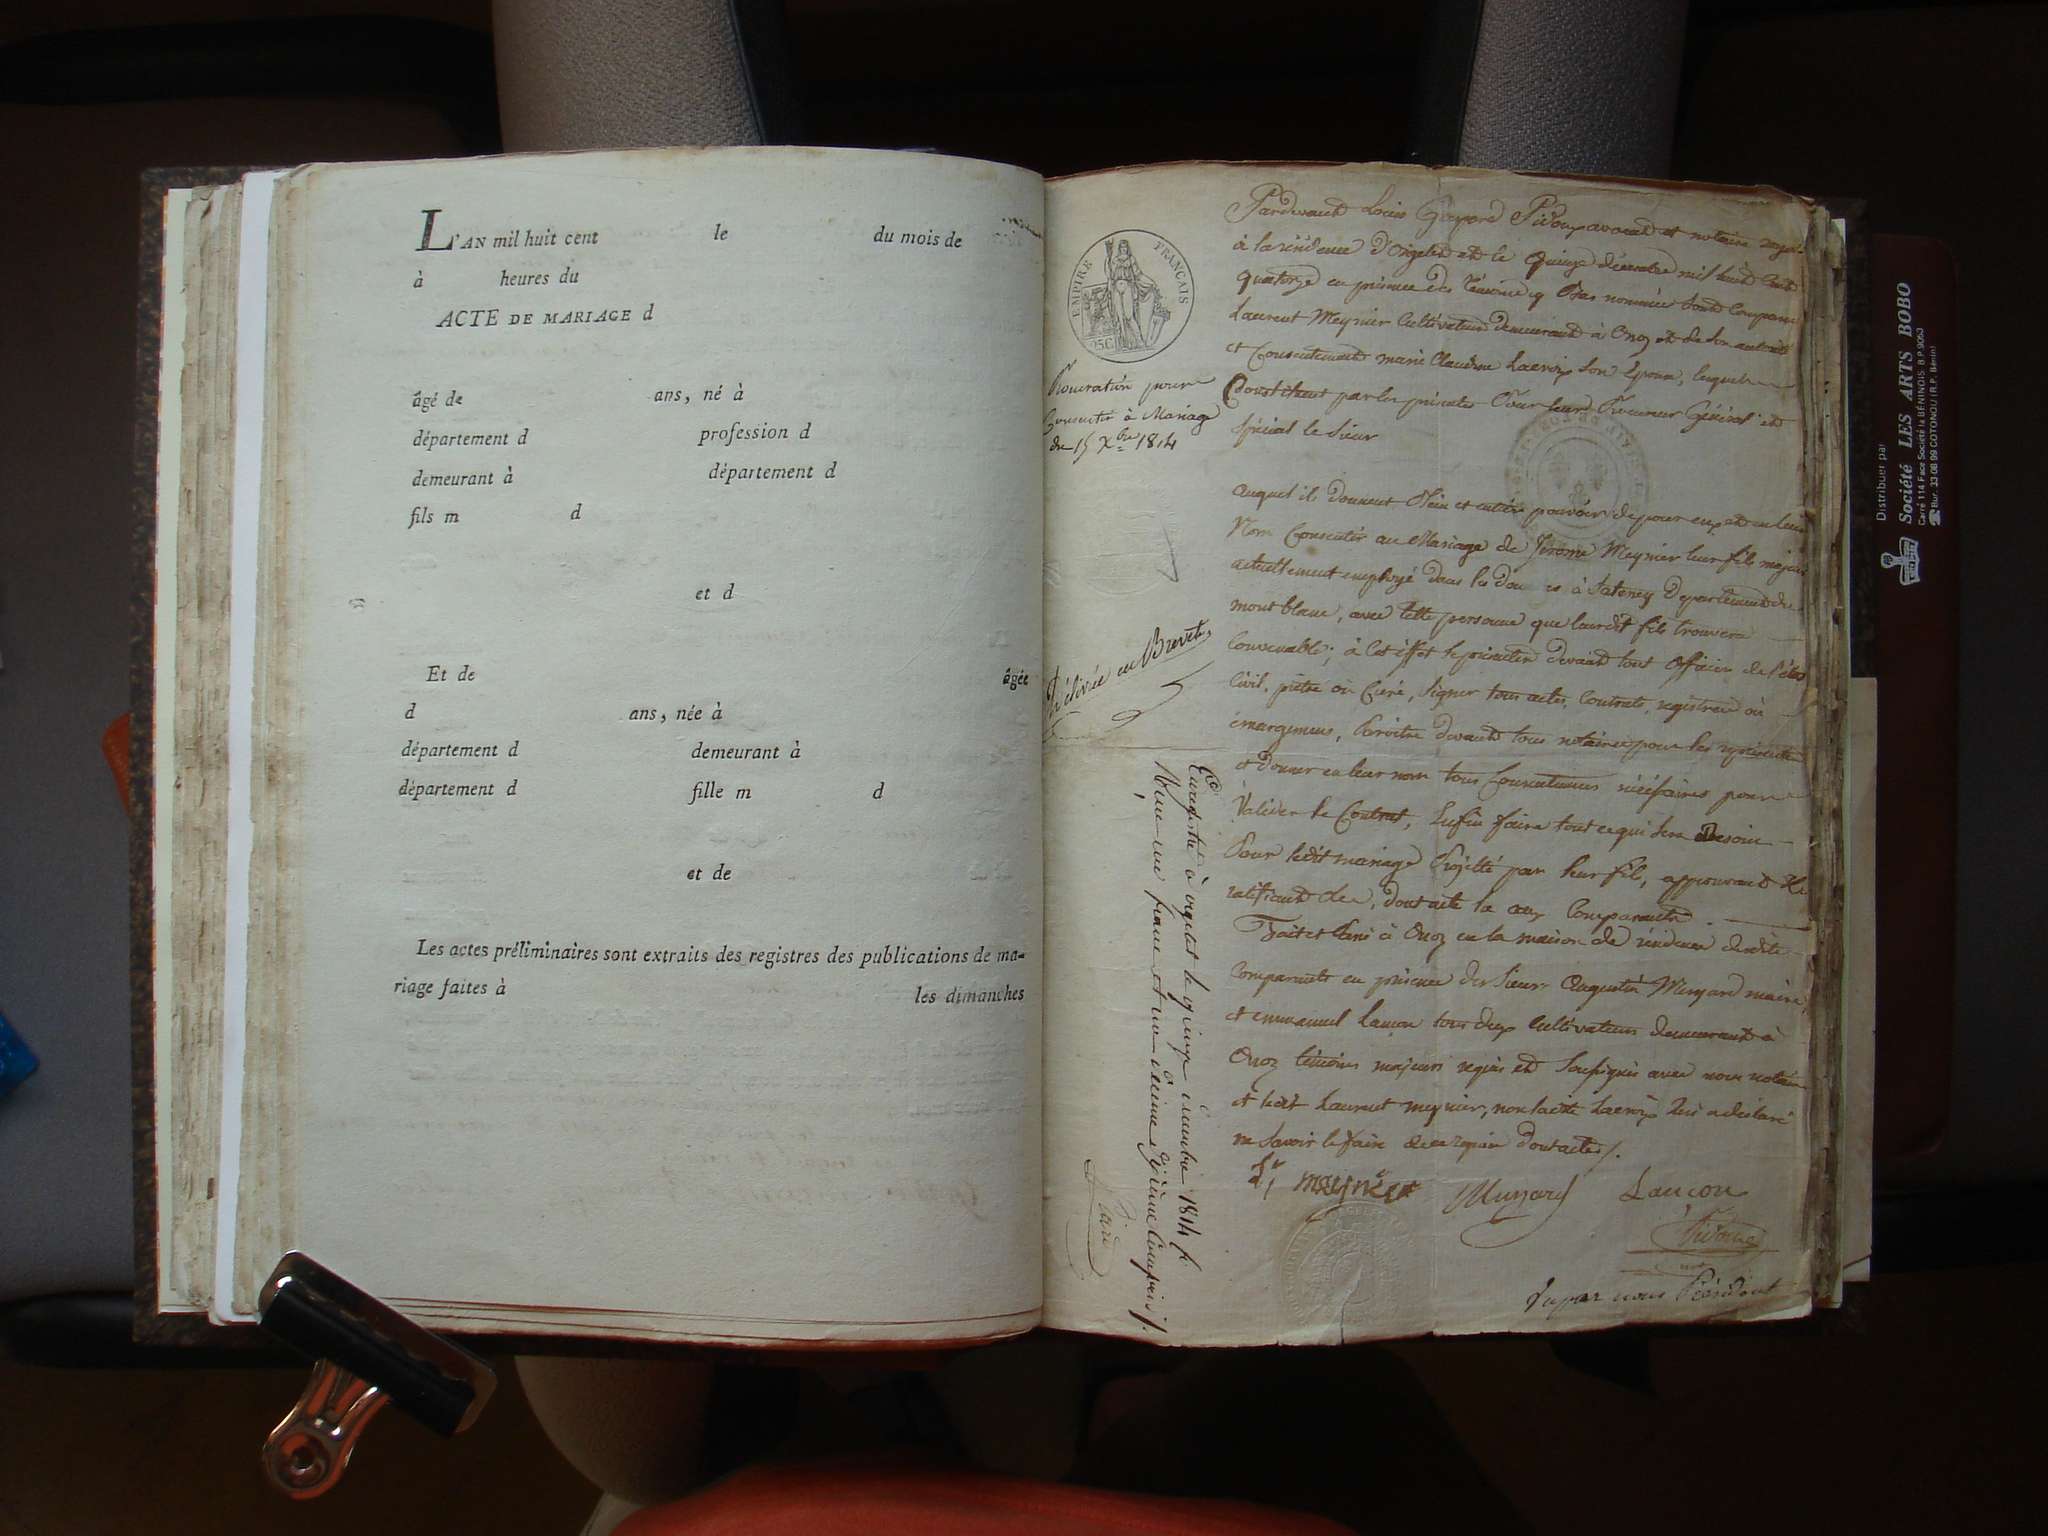 L'AN mil huit cent le du mois de
à heures du
ACTE DE MARIAGE d
âgé de ans, né à
département d profession d
demeurant à département d
fils m d
et d
Et de âgée
d ans, née à
département d demeurant à
département d fille m d
et de
Les actes préliminaires sont extraits des registres des publications de ma-
riage faites à les dimanches
EMPIRE FRANÇAIS
25C
Procuration pour
Consentir à Mariage
du 15 Xbre 1814
Délivrée en Brevet
Enregistré à orgelet le quinze décembre 1814 f.
Reçu un franc et un décime dixième compris
Pardevant Louis Gaspard Pidoux avocat et notaire royal
à la résidence d'Orgelet et le quinze décembre mil huit cent
quatorze en présence des témoins cy bas nommés sont comparu
Laurent Meynier Cultivateur demeurant à Onoz et de son autorité
et Consentement marie Claudine Lacroix son Epouse, lesquels
Constituent par les présentes Pour leur Procureur Général et
spécial le Sieur
auquel ils donnent Plein et entier pouvoir de pour eux et en leur
Nom Consentir au Mariage de Jérome Meynier leur fils majeur
actuellement employé dans les dou es à Département du
mont blanc, avec telle personne que leurdit fils trouvera
Convenable; à Cet effet se présenter devant tout Officier de l'état
Civil, prêtre ou Curé, signer tous actes, Contrats, registres ou
émargemens, Paroitre devant tous notaires pour les représenter
et donner en leur nom tous Consentemens nécéssaires pour
Valider le Contrat, Enfin faire tout ce qui sera Besoin
Pour ledit mariage Projetté par leur fils, approuvant et
ratifiant de, dont acte la aux Comparants
Fait et Passé à Onoz en la maison de résidence desdits
Comparants en présence des Sieurs Augustin Munard maire
et emmanuel Lancon tous deux Cultivateurs demeurant à
Onoz témoins majeurs requis et soussignés avec nous notaire
et ledit Laurent meynier, non ladite Lacroix Qui a déclaré
ne Savoir le faire de ce requise dont acte
meynier Lancon
Pidoux
Vu par nous Président
Distribuer par
Société LES ARTS BOBO
Carré 114 Face Société la BÉNINOISE B.P. 9053
Bur. 33 08 99 COTONOU (R.P. Bénin)